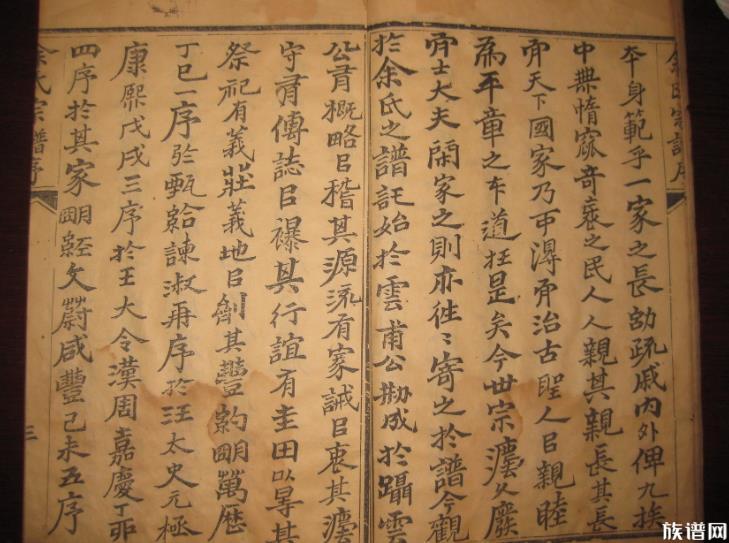 余氏宗譜序
本身範乎一家之長幼疏戚内外俾九族
中無惰窳奇衺之民人人親其親長其長
而天下國家乃可得而治古聖人㠯親睦
爲平章之本道在是矣今世宗灋久廢
而士大夫閑家之則亦徃〻寄之於譜今觀
於余氏之譜託始於雲甫公勘成於躡雲
公有概略㠯稽其源流有家誡㠯衷其灋
守有傳誌㠯襮其行誼有圭田以㝵其
祭祀有義莊義地㠯劑其豐約明萬厯
丁巳一序於甄給諫淑再序於汪太史元極
康熙戊戌三序於王大令漢周嘉慶丁卯
四序於其家明經文蔚咸豐己未五序
余氏宗譜序
三
族谱网